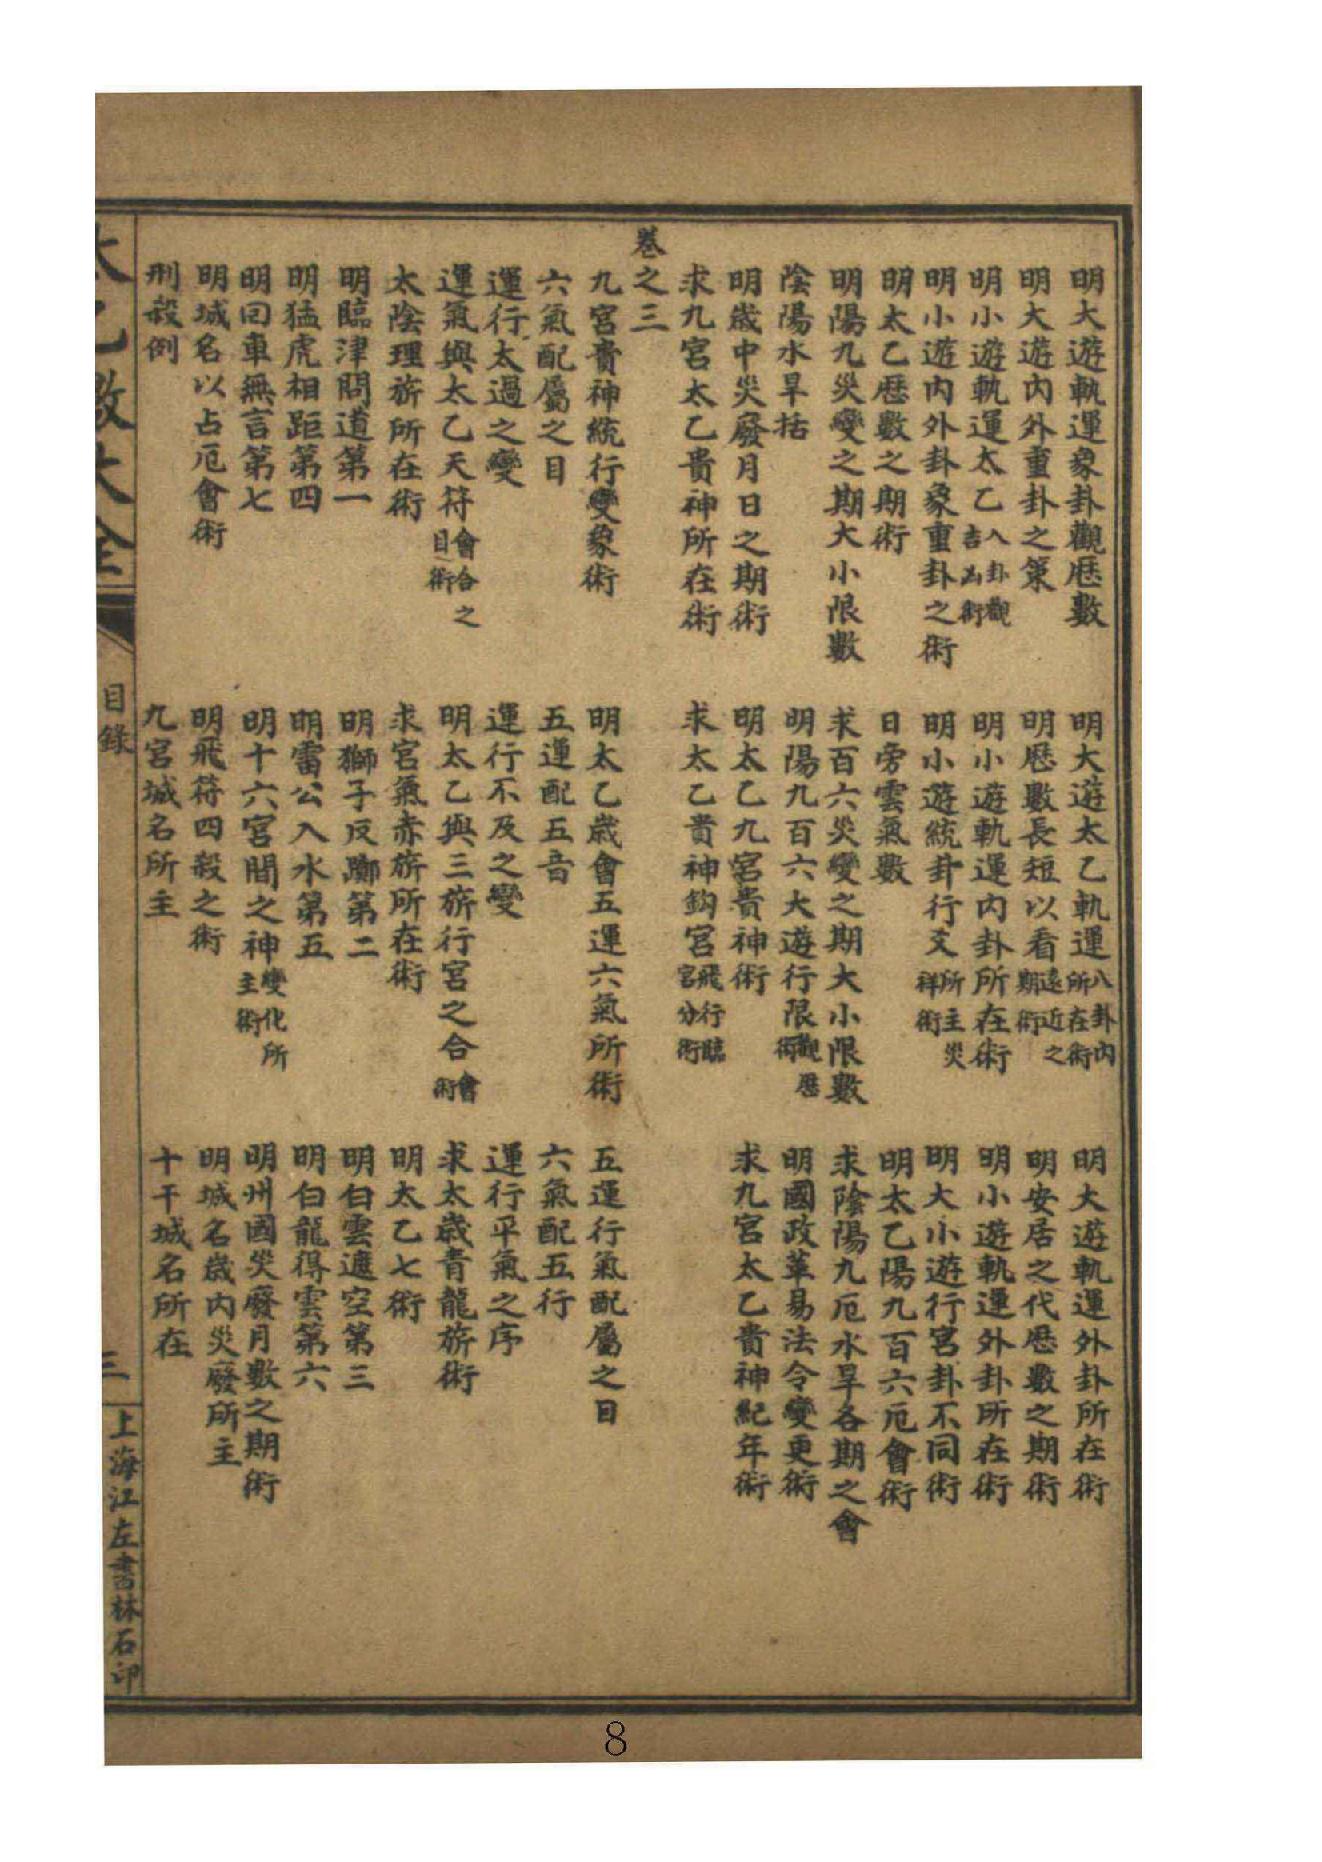 明大遊軌運象卦觀歷數
明大遊太乙軌運八卦內所在術
明大遊軌運外卦所在術
明大遊內外重卦之策
明歷數長短以看遠近之期術
明安居之代歷數之期術
明小遊軌運太乙入卦觀吉凶術
明小遊軌運內卦所在術
明小遊軌運外卦所在術
明小遊內外卦象重卦之術
明小遊統卦行爻所主災祥術
明大小遊行宮卦不同術
明太乙歷數之期術
日旁雲氣數
明太乙陽九百六厄會術
明陽九災變之期大小限數
求百六災變之期大小限數
求陰陽九厄水旱各期之會
陰陽水旱括
明陽九百六大遊行限觀歷術
明國政革易法令變更術
明歲中災廢月日之期術
明太乙九宮貴神術
求九宮太乙貴神紀年術
求九宮太乙貴神所在術
求太乙貴神鈎宮飛行臨宮分術
卷之三
九宮貴神統行變象術
明太乙歲會五運六氣所術
五運行氣配屬之日
六氣配屬之目
五運配五音
六氣配五行
運行太過之變
運行不及之變
運行平氣之序
運氣與太乙天符會合之目術
明太乙與三旂行宮之合會術
求太歲青龍旂術
太陰理旂所在術
求宮氣赤旂所在術
明太乙七術
明臨津問道第一
明獅子反躑第二
明白雲遮空第三
明猛虎相距第四
明雷公入水第五
明白龍得雲第六
明回車無言第七
明十六宮間之神變化所主術
明州國災廢月數之期術
明城名以占厄會術
明飛符四殺之術
明城名歲內災廢所主
刑殺例
九宮城名所主
十干城名所在
太乙數大全
目錄
三
上海江左書林石印
8